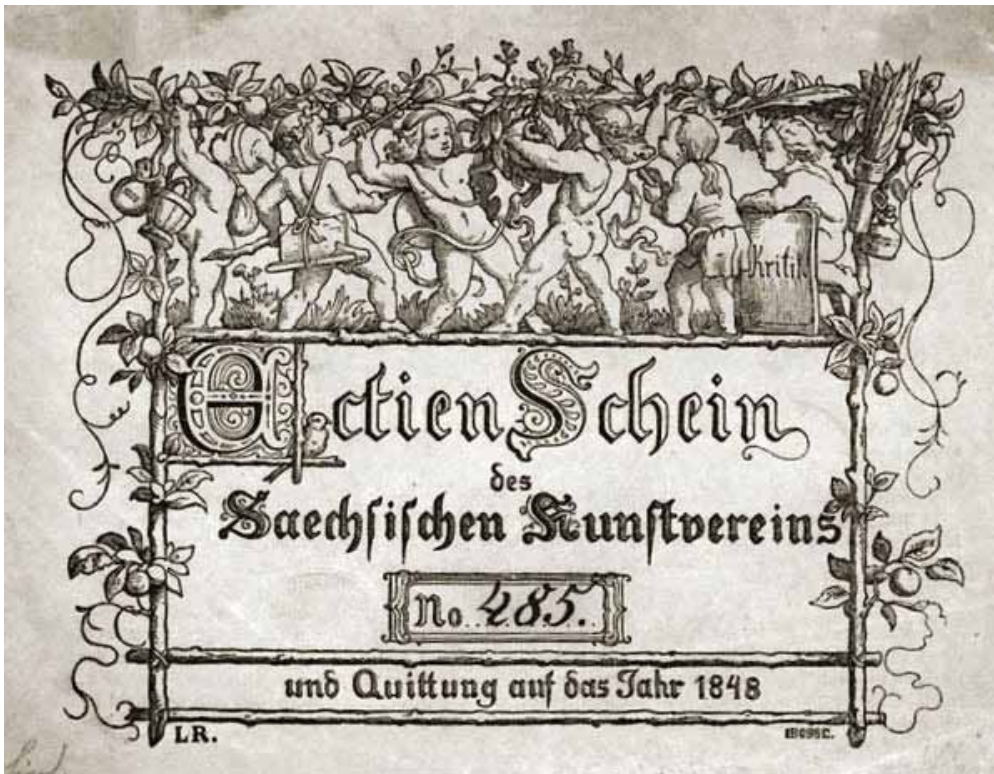 Kritik
Actien Schein
des
Saechsischen Kunstvereins
No. 485.
und Quittung auf das Jahr 1848
LR.